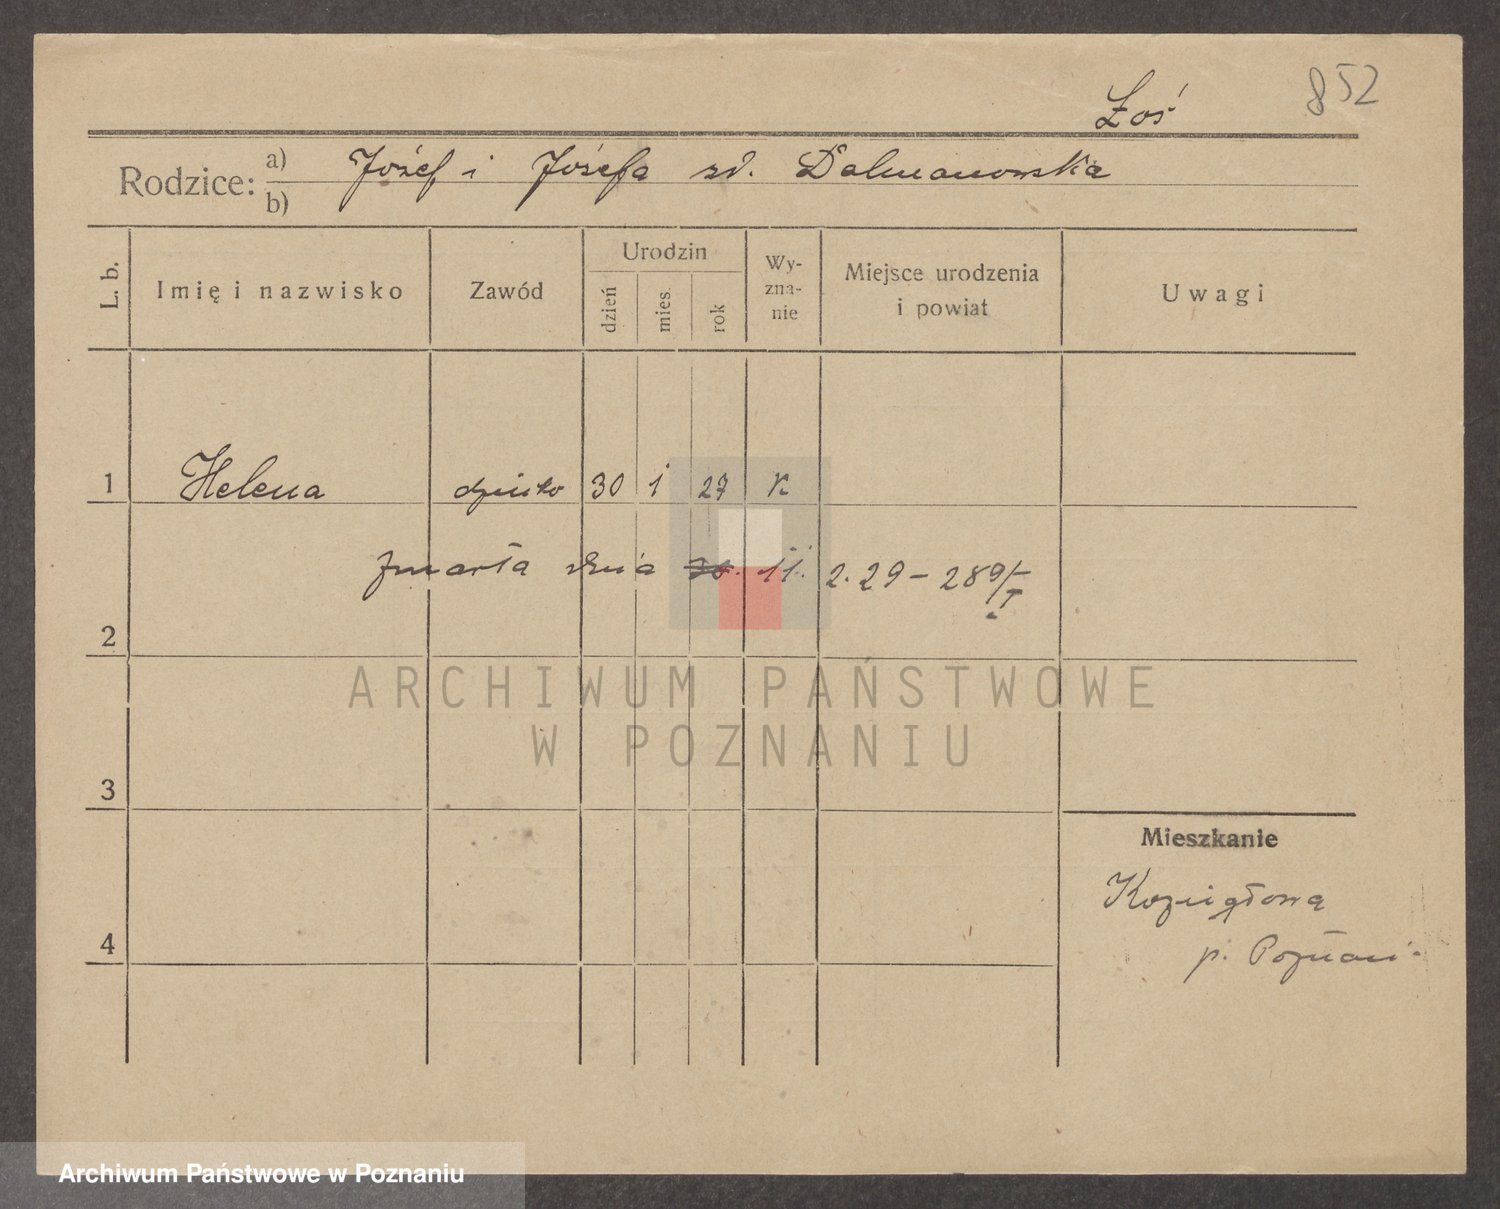 852
Łoś
Rodzice: a) Józef i Józefa zd. Dalmanowska
b)
L. b. Imię i nazwisko Zawód Urodzin dzień mies. rok Wy-zna-nie Miejsce urodzenia i powiat Uwagi
1 Helena dziecko 30 1 27 k
zmarła dnia 30. 11. 2. 29 – 289/I
2
3
4
Mieszkanie
Koziegłową
p. Poznań
ARCHIWUM PAŃSTWOWE
W POZNANIU
Archiwum Państwowe w Poznaniu